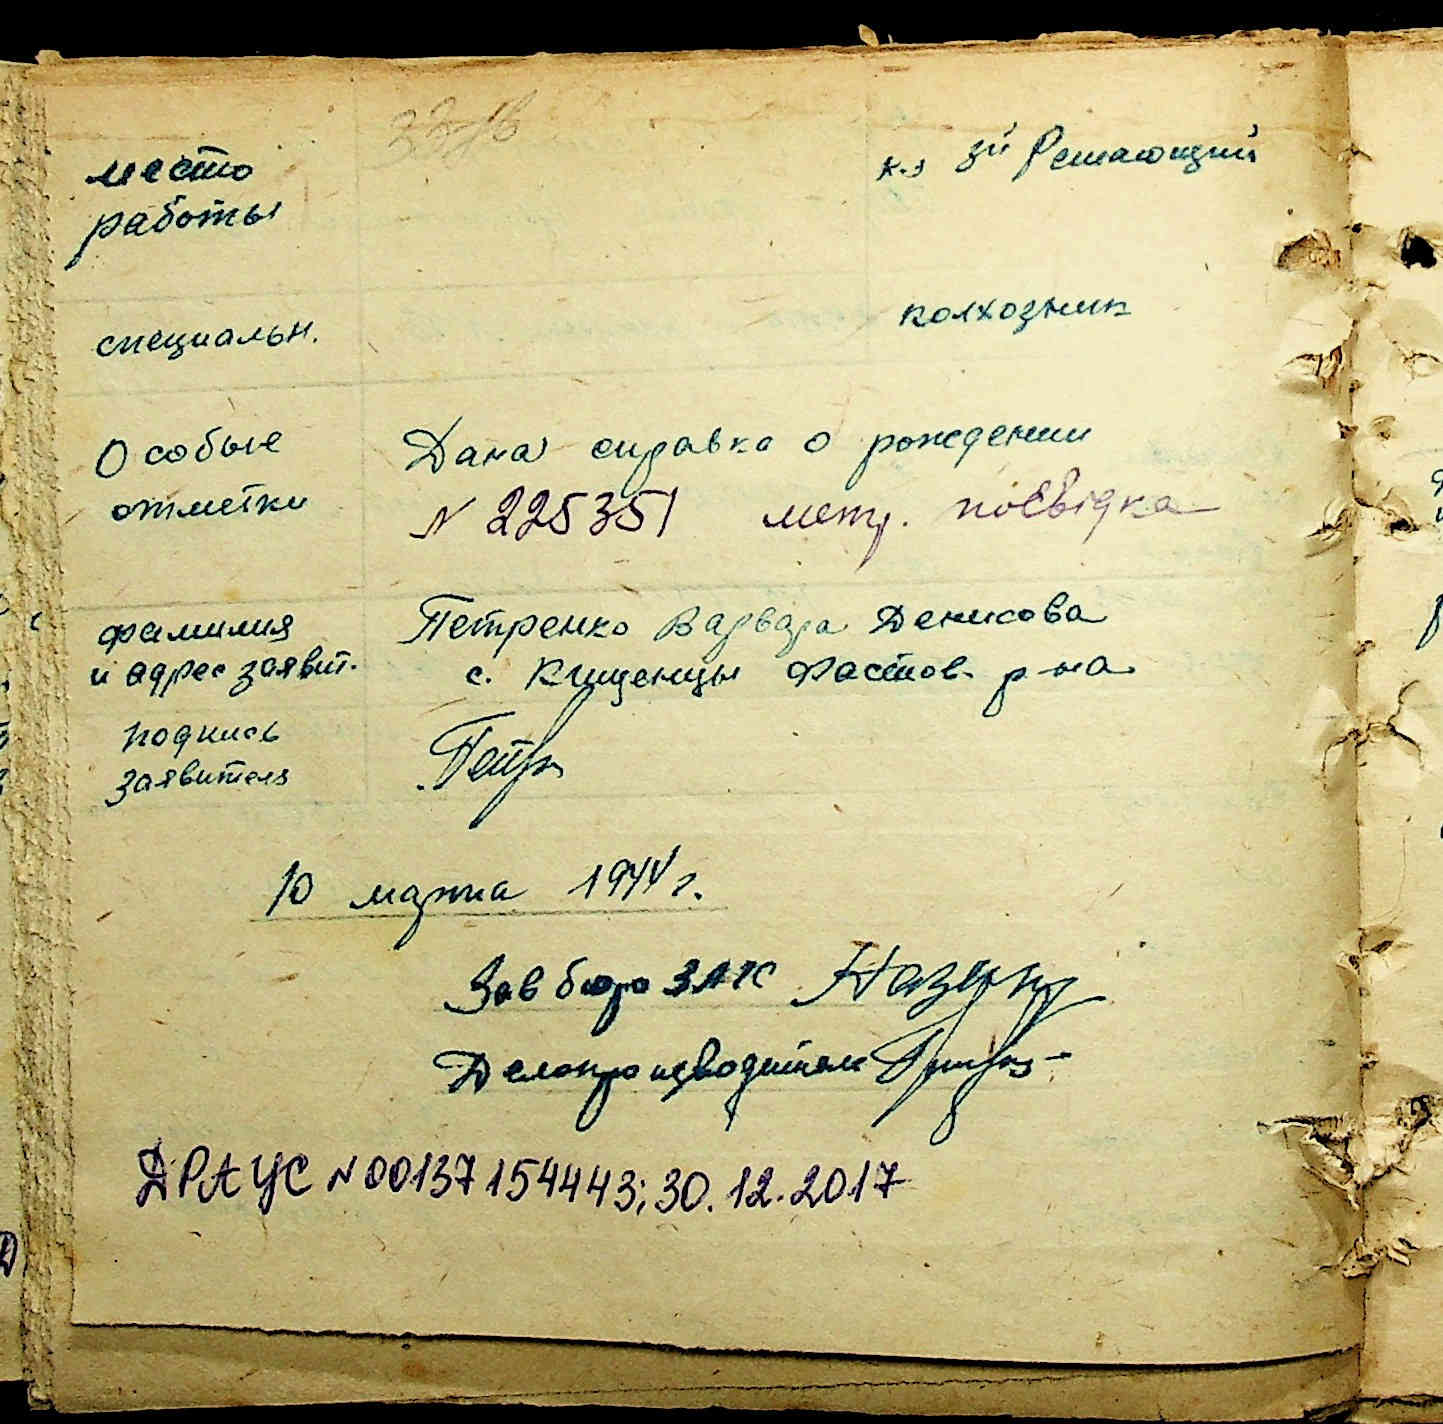 место
работы
к-з 3й Решающий
специальн.
колхозник
Особые
отметки
Дана справка о рождении
N 225351 метр. посвідка
фамилия
и адрес заявит.
Петренко Варвара Денисова
с. Кищенцы Фастов. р-на
подпись
заявителя
Петр
10 марта 1944 г.
Зав бюро ЗАГС
Делопроизводитель
ДРАЦС N 00137154443; 30.12.2017